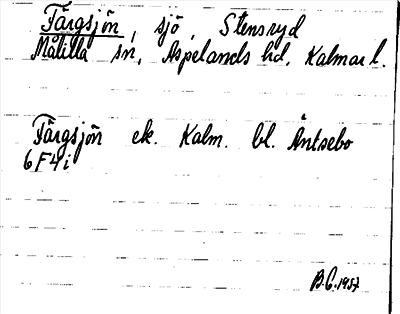 Färgsjön, sjö, Stensryd
Målilla sn, Aspelands hd, Kalmar l.
Färgsjön ek. Kalm. bl. Äntsebo
6F4i
B.C. 1957